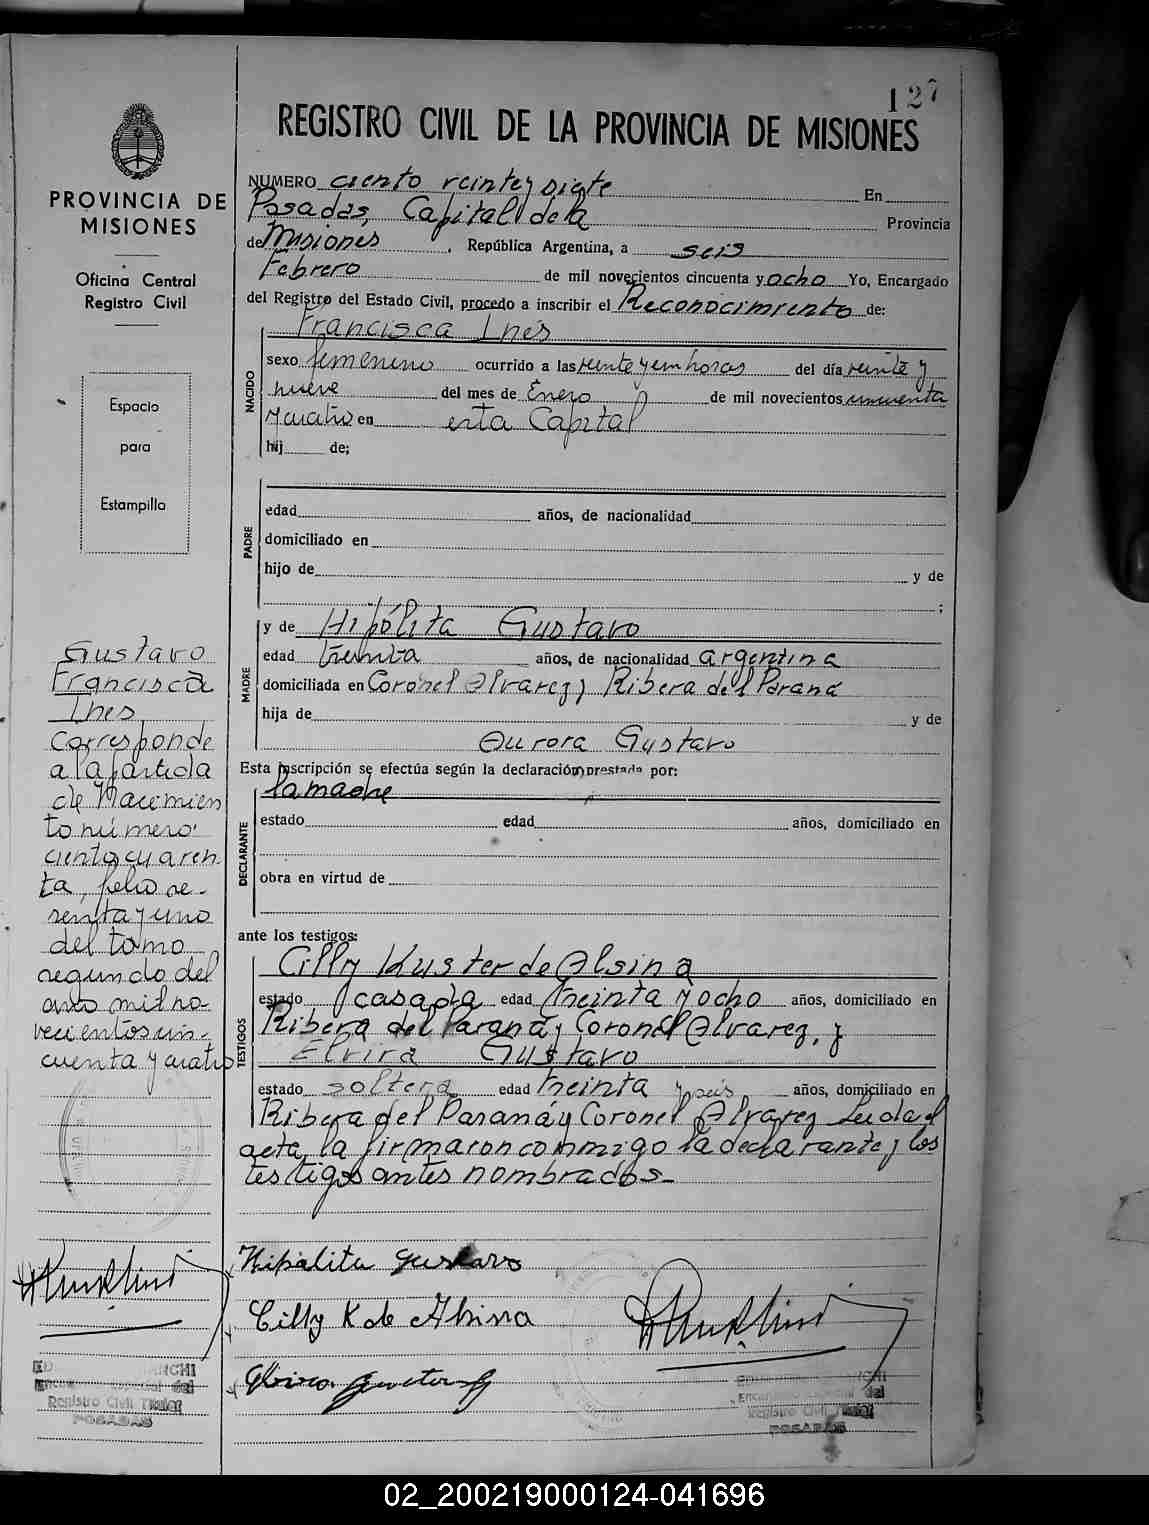 127
REGISTRO CIVIL DE LA PROVINCIA DE MISIONES
PROVINCIA DE
MISIONES
Oficina Central
Registro Civil
Espacio
para
Estampilla
NUMERO ciento veinte y siete En
Posadas, Capital de la Provincia
de Misiones, República Argentina, a seis
Febrero de mil novecientos cincuenta y ocho Yo, Encargado
del Registro del Estado Civil, procedo a inscribir el Reconocimiento de:
Francisca Inés
NACIDO
sexo femenino ocurrido a las veinte y un horas del día veinte y
nueve del mes de Enero de mil novecientos cincuenta
y cuatro en esta Capital
hij de;
PADRE
edad años, de nacionalidad
domiciliado en
hijo de y de
;
MADRE
y de Hipólita Gustavo
edad treinta años, de nacionalidad argentina
domiciliada en Coronel Alvarez y Ribera del Paraná
hija de y de
Aurora Gustavo
Esta inscripción se efectúa según la declaración prestada por:
DECLARANTE
la madre
estado edad años, domiciliado en
obra en virtud de
ante los testigos:
TESTIGOS
Cilly Kuster de Alsina
estado casada edad treinta y ocho años, domiciliado en
Ribera del Paraná y Coronel Alvarez, y
Elvira Gustavo
estado soltera edad treinta y seis años, domiciliado en
Ribera del Paraná y Coronel Alvarez Leida el
acta, la firmaron conmigo la declarante y los
testigos antes nombrados.
Gustavo
Francisca
Ines
Corresponde
a la partida
de Nacimien
to número
ciento cuaren
ta, folio se-
senta y uno
del tomo
segundo del
año mil no-
vecientos cin-
cuenta y cuatro
Hipalita Gustavo
Cilly K de Alsina
Encargado Especial del
Registro Civil Titular
POSADAS
Encargado Especial del
Registro Civil Titular
POSADAS
02_200219000124-041696